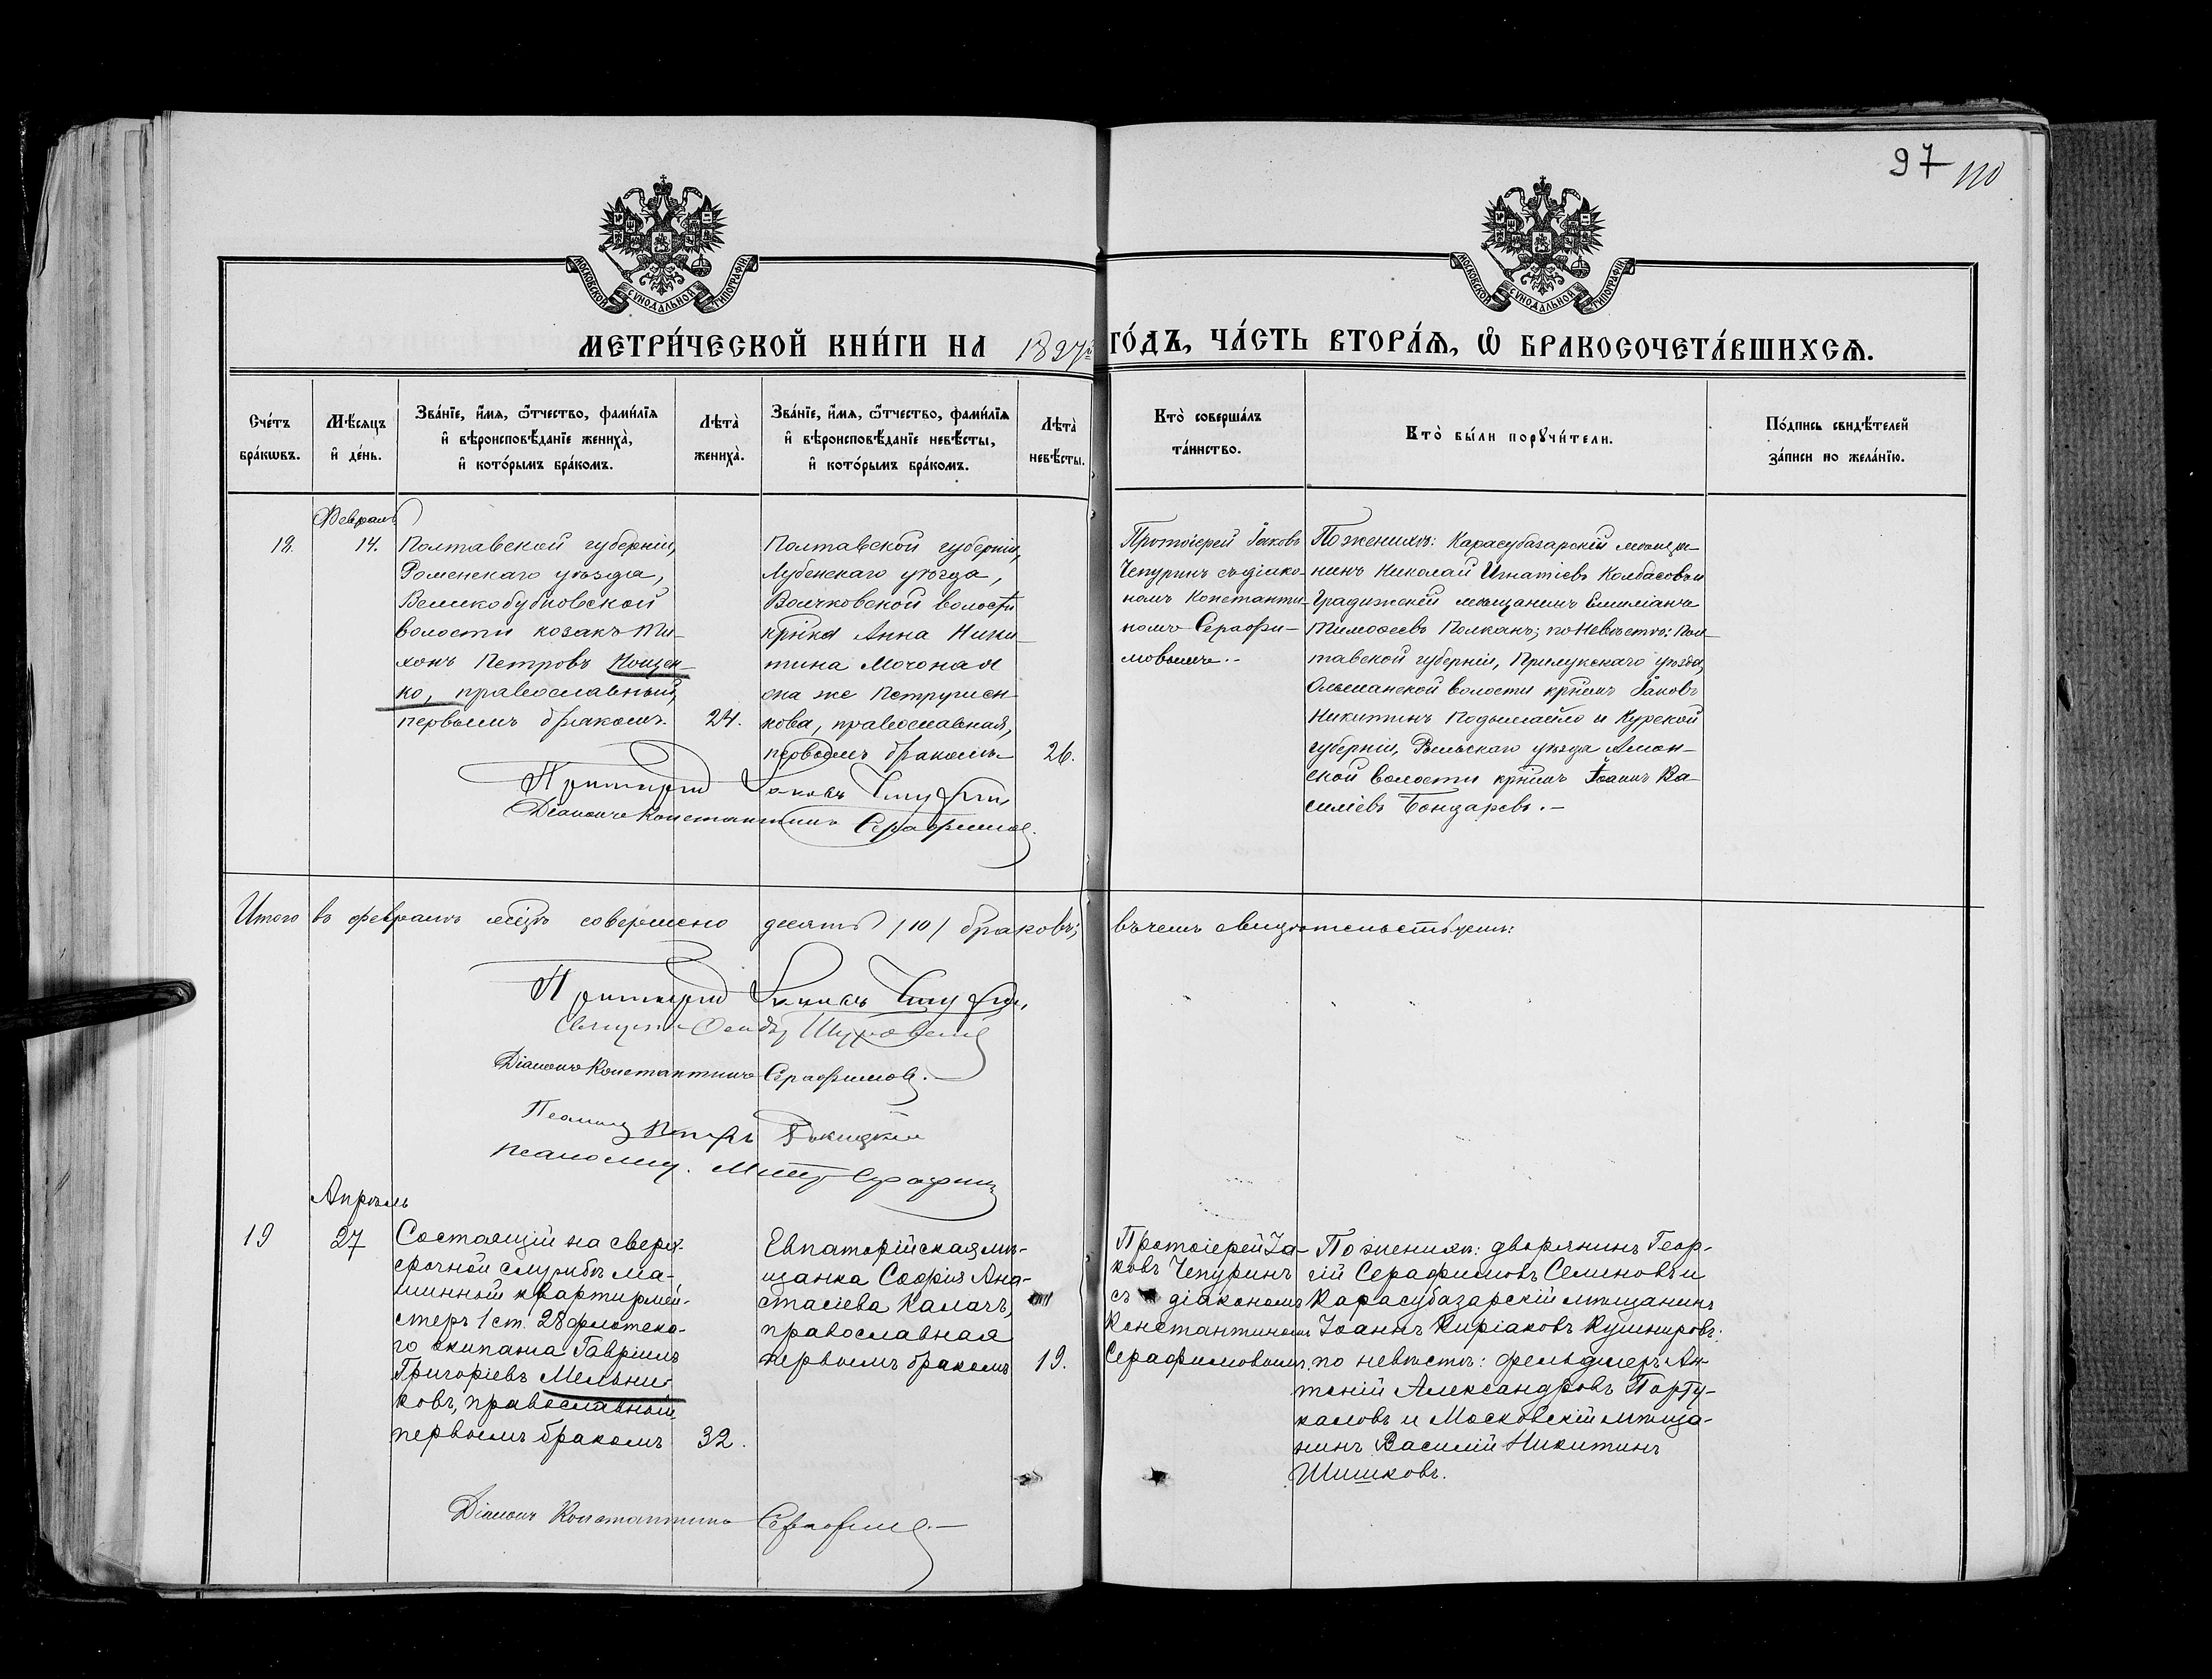 97 110
МОСКОВСКОЙ СѴНОДАЛЬНОЙ ТИПОГРАФІИ
МОСКОВСКОЙ СѴНОДАЛЬНОЙ ТИПОГРАФІИ
МЕТРИ́ЧЕСКОЙ КНИ́ГИ НА 1897 ГО́ДЪ, ЧА́СТЬ ВТОРА́Ѧ, Ѽ БРАКОСОЧЕТА́ВШИХСѦ.
Сче́тъ
бра́кѡвъ.
Мѣ́сяцъ
и҆ де́нь.
Зва́нїе, и҆́мѧ, ѻ҆́тчество, фами́лїѧ
и҆ вѣроисповѣ́данїе жениха̀,
и҆ кото́рымъ бра́комъ.
Лѣта̀
жениха̀.
Зва́нїе, и҆́мѧ, ѻ҆́тчество, фами́лїѧ
и҆ вѣроисповѣ́данїе невѣ́сты,
и҆ кото́рымъ бра́комъ.
Лѣта̀
невѣ́сты.
Кто̀ соверша́лъ
та́инство.
Кто̀ бы́ли порꙋчи́тели.
По́дпись свидѣ́телей
за́писи по жела́нїю.
Февраль
18.
14.
Полтавской губерніи,
Роменскаго уѣзда,
Великобубновской
волости козакъ Ти-
хонъ Петровъ Нощен-
ко, православный,
первымъ бракомъ.
24.
Полтавской губерніи,
Лубенскаго уѣзда,
Волчковской волости
крѣнка Анна Ники-
тина Мочоная
она же Петрушен-
кова, православная,
первымъ бракомъ
26.
Протоіерей Іаковъ
Чепуринъ съ діако-
номъ Константи-
номъ Серафи-
мовымъ.-
По женихѣ: Карасубазарскій мѣща-
нинъ Николай Игнатіевъ Колбасовъ и
Градижскій мѣщанинъ Емиліанъ
Тимоѳеевъ Полканъ; по невѣстѣ: Пол-
тавской губерніи, Прилукскаго уѣзда,
Ольшанской волости крѣнинъ Іаковъ
Никитинъ Подымайло и Курской
губерніи, Рыльскаго уѣзда Амон-
ской волости крѣнинъ Іоаннъ Ва-
силіевъ Бондаревъ.-
Протоіерей Іаковъ Чепуринъ
Діаконъ Константинъ Серафимовъ.
Итого въ февралѣ мѣцѣ совершено десять /10/ браковъ; въ чемъ свидѣтельствуемъ:
Протоіерей Іаковъ Чепуринъ
Діаконъ Константинъ Серафимовъ.
Псаломщ. Петръ
Псаломщ.
Апрѣль
19
27
Состоящій на сверх-
срочной службѣ ма-
шинный квартирмей-
стеръ 1 ст. 28 флотска-
го экипажа Гавріилъ
Григоріевъ Мельни-
ковъ, православный
первымъ бракомъ
32.
Евпаторійская мѣ-
щанка Софія Ана-
стасіева Калачъ,
православная
первымъ бракомъ
19.
Протоіерей Іа-
ковъ Чепуринъ
съ діакономъ
Константиномъ
Серафимовымъ.
По женихѣ: дворянинъ Геор-
гій Серафимовъ Семеновъ и
Карасубазарскій мѣщанинъ
Іоаннъ Киріаковъ Кушнировъ;
по невѣстѣ: фельдшеръ Ан-
тоній Александровъ Порту-
каловъ и Московскій мѣща-
нинъ Василій Никитинъ
Шишковъ.
Діаконъ Константинъ Серафимовъ.-